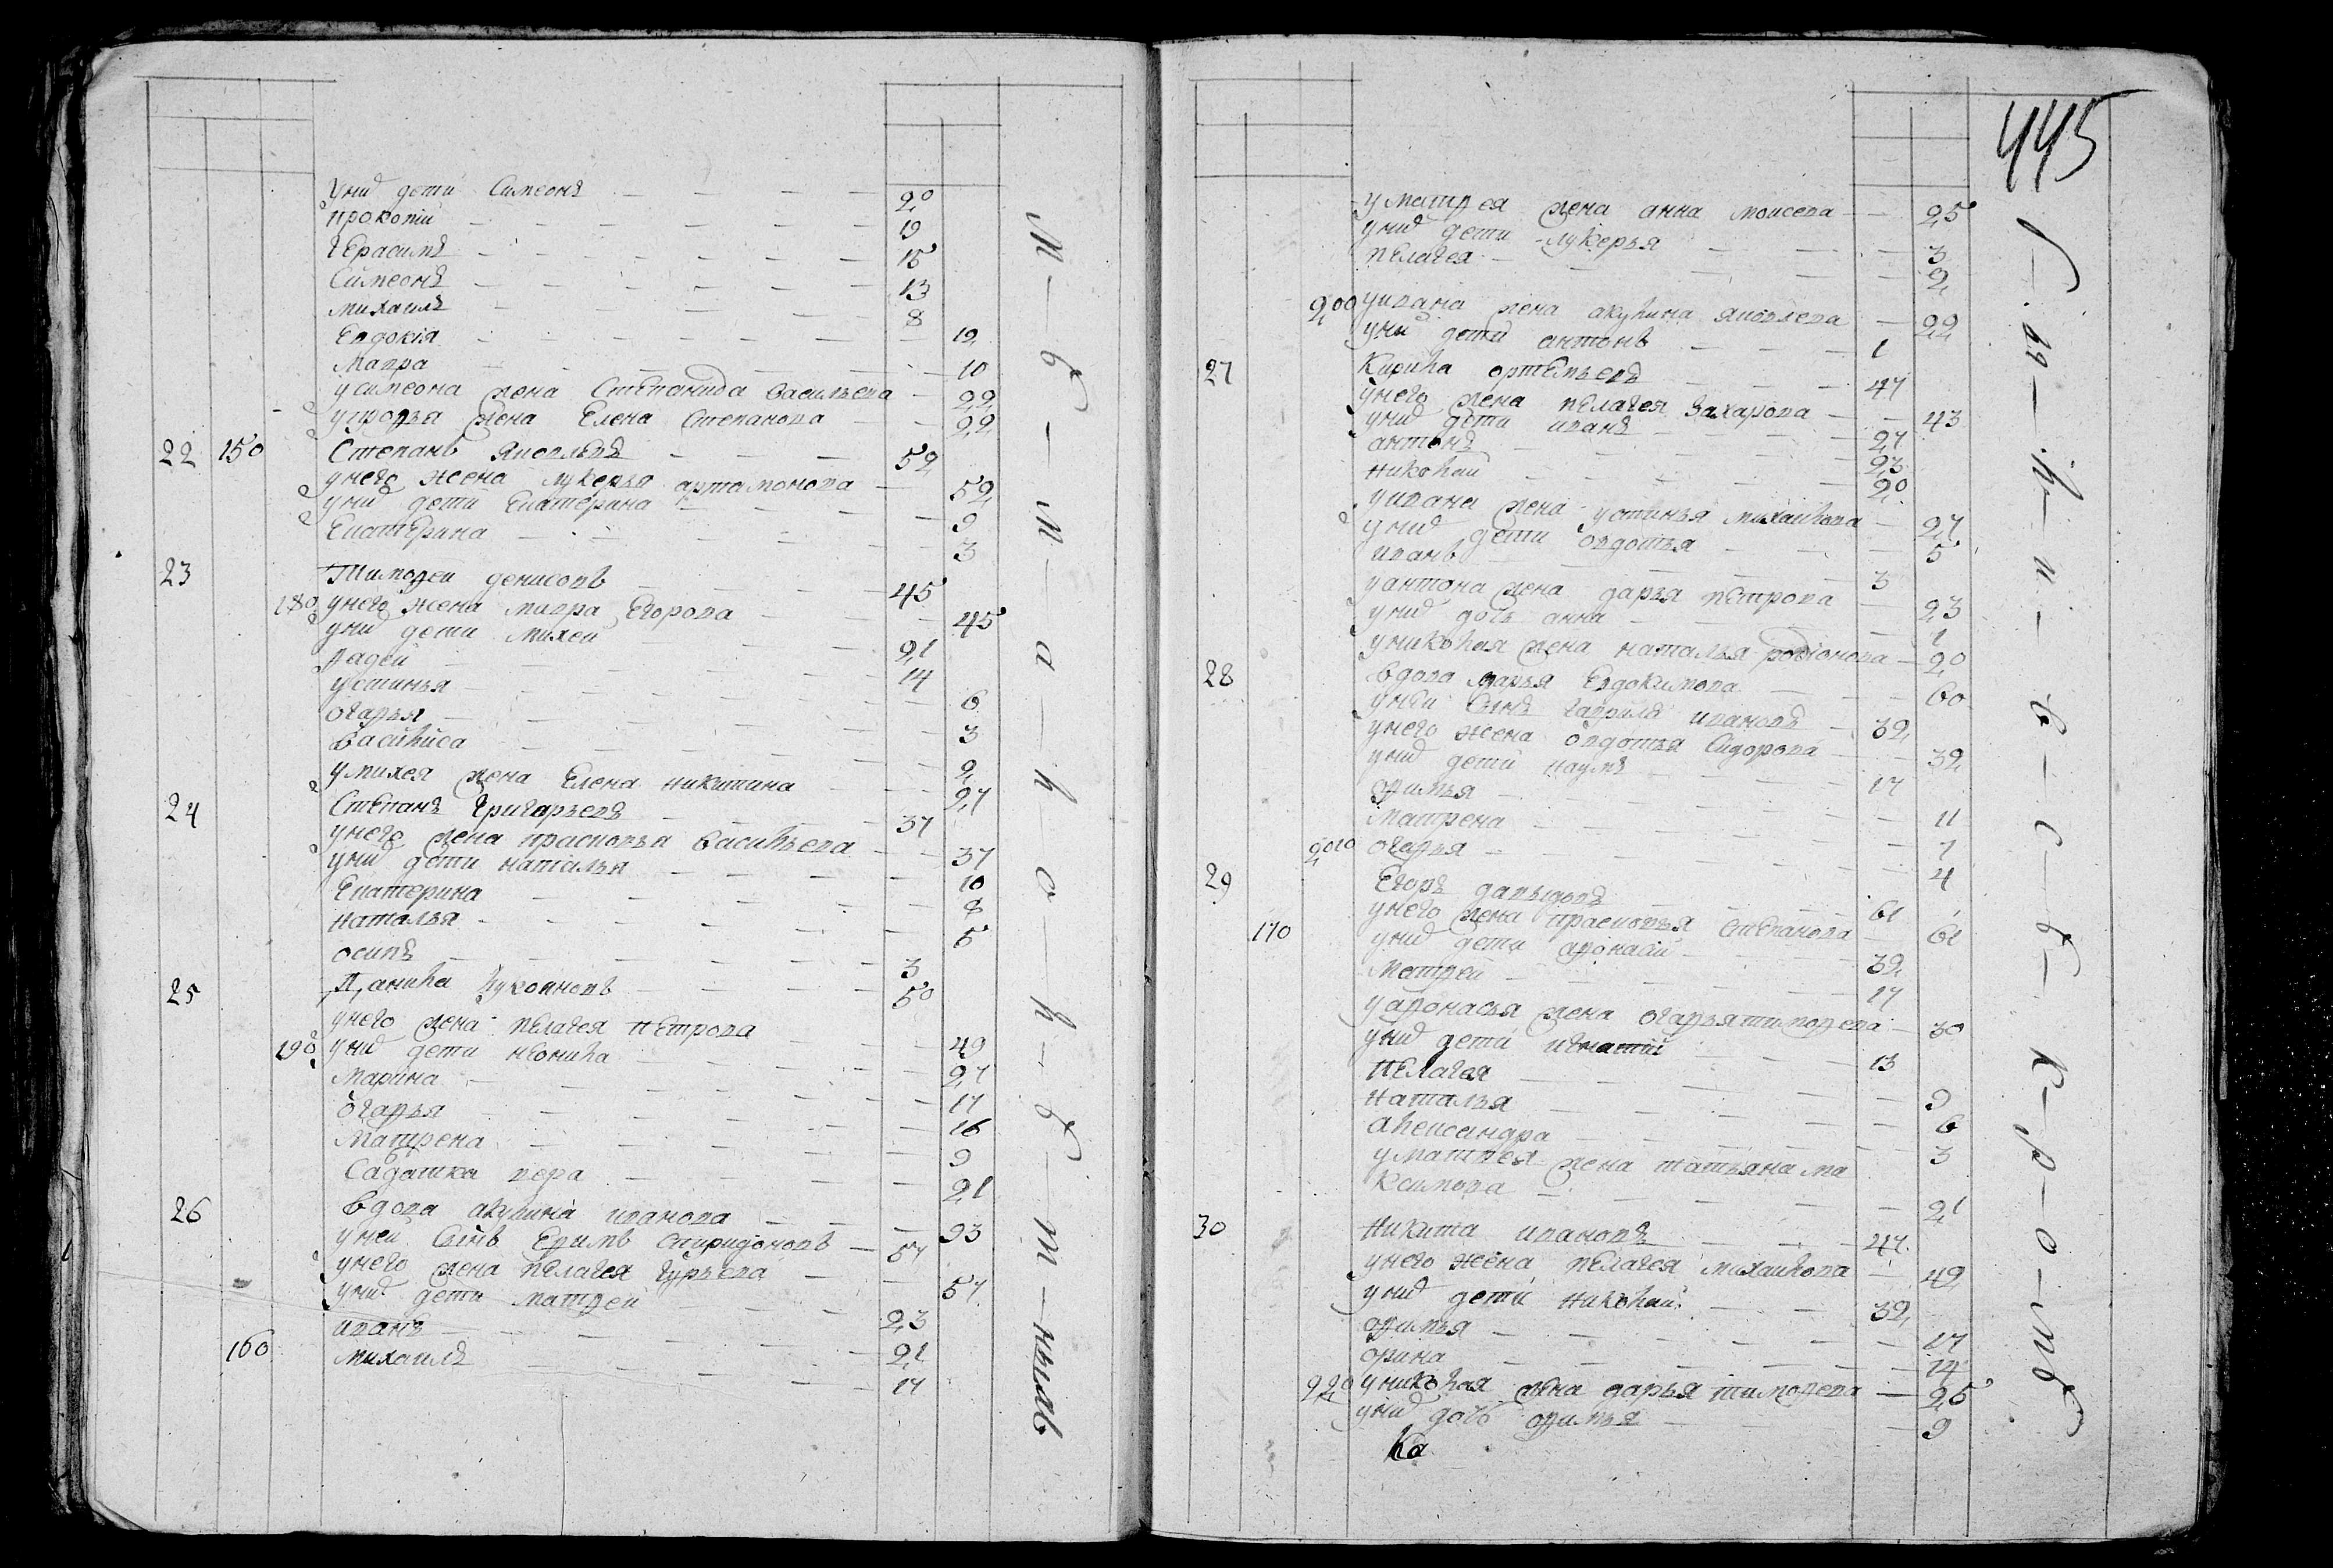 У нихъ дети Симеонъ — — — 20
Прокопiй — — — 19
Герасимъ — — — 15
Симеонъ — — — 13
Михаилъ — — — 8
Евдокiя — — — 12
Мавра — — — 10
у симеона жена Степанида Васильева — 22
жена Елена Степанова — 22
22 150 Степанъ Яковлевъ — — — 52
у него жена лукерья артамонова — 52
у нихъ дети Екатерина — — 9
Екатерина — — — 3
23 Тимофеи денисовъ — — — 45
180 у него жена мавра Егорова — — 45
у нихъ дети михеи — — 21
фадей — — — 14
устинья — — — 6
огафья — — — 3
василиса — — — 2
у михея жена Елена никитина — — 24
24 Степанъ Григорьевъ — — — 37
у него жена прасковья васильева — 37
у нихъ дети наталья — — — 10
Екатерина — — — 8
наталья — — — 5
осипъ — — — 3
25 Данила — — — 50
у него жена пелагея петрова — 49
190 у нихъ дети неонила — — 27
Марина — — — 17
огафья — — — 16
Матрена — — — 9
вера — — — 21
26 вдова акулина иванова — — 93
у ней сынъ Ефимъ спиридоновъ — 57
у него жена пелагея гурьева — 57
у нихъ дети матфеи — — 23
иванъ — — — 21
160 михаилъ — — — 17
445
у матфея жена анна моисева — 25
у нихъ дети лукерья — — 3
пелагея — — — 2
200 у ивана жена акулина яковлева — 22
у нихъ дети антонъ — — — 1
27 Кирила ортемьевъ — — — 47
у него жена пелагея захарова — — 43
у нихъ дети иванъ — — 27
антонъ — — — 23
николаи — — — 20
у ивана жена устинья михаилова — 27
у нихъ дети овдотья — — 5
иванъ — — — 3
у антона жена дарья петрова — 23
у нихъ дочь анна — — — 1
у николая жена наталья родiонова — 20
28 вдова марья Евдокимова — — 60
у ней сынъ гаврила ивановъ — 32
у него жена овдотья сидорова — 32
у нихъ дети наумъ — — 17
офимья — — — 11
матрена — — — 7
210 огафья — — — 4
29 Егоръ давыдовъ — — — 61
у него жена прасковья степанова — 61
170 у нихъ дети афонасiй — — 32
Матфей — — — 17
у афонасья жена огафья тимофева — 30
у нихъ дети игнатiй — — 13
пелагея — — — 9
наталья — — — 6
александра — — — 3
у матфея жена татьяна ма
ксимова — — — 21
30 Никита ивановъ — — — 47
у него жена пелагея михаилова — 42
у нихъ дети николаи — — 32
офимья — — — 17
орина — — — 14
220 у николая жена дарья тимофева — 25
у нихъ дочь офимья — — — 9
Ка